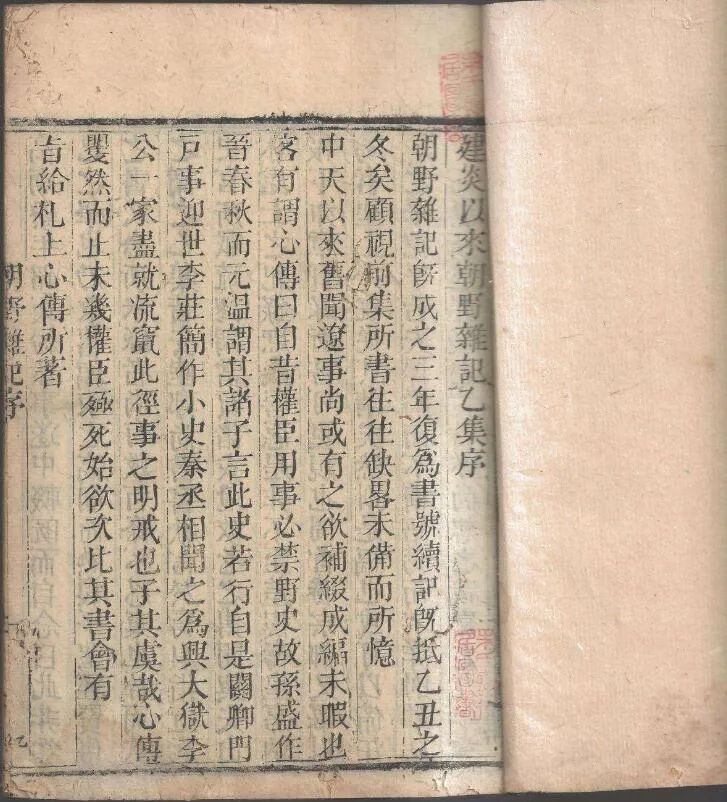 建炎以來朝野雜記乙集序
朝野雜記旣成之三年復爲書號續記旣抵乙丑之
冬矣顧視前集所書往往缺畧未備而所憶
中天以來舊聞遼事尚或有之欲補綴成編未暇也
客有謂心傳曰自昔權臣用事必禁野史故孫盛作
晉春秋而元溫謂其諸子言此史若行自是關卿門
戸事迎世李莊簡作小史秦丞相聞之爲興大獄李
公一家盡就流竄此徑事之明戒也子其虞哉心傳
矍然而止未幾權臣殛死始欲次比其書會有
旨給札上心傳所著
朝野雜記序